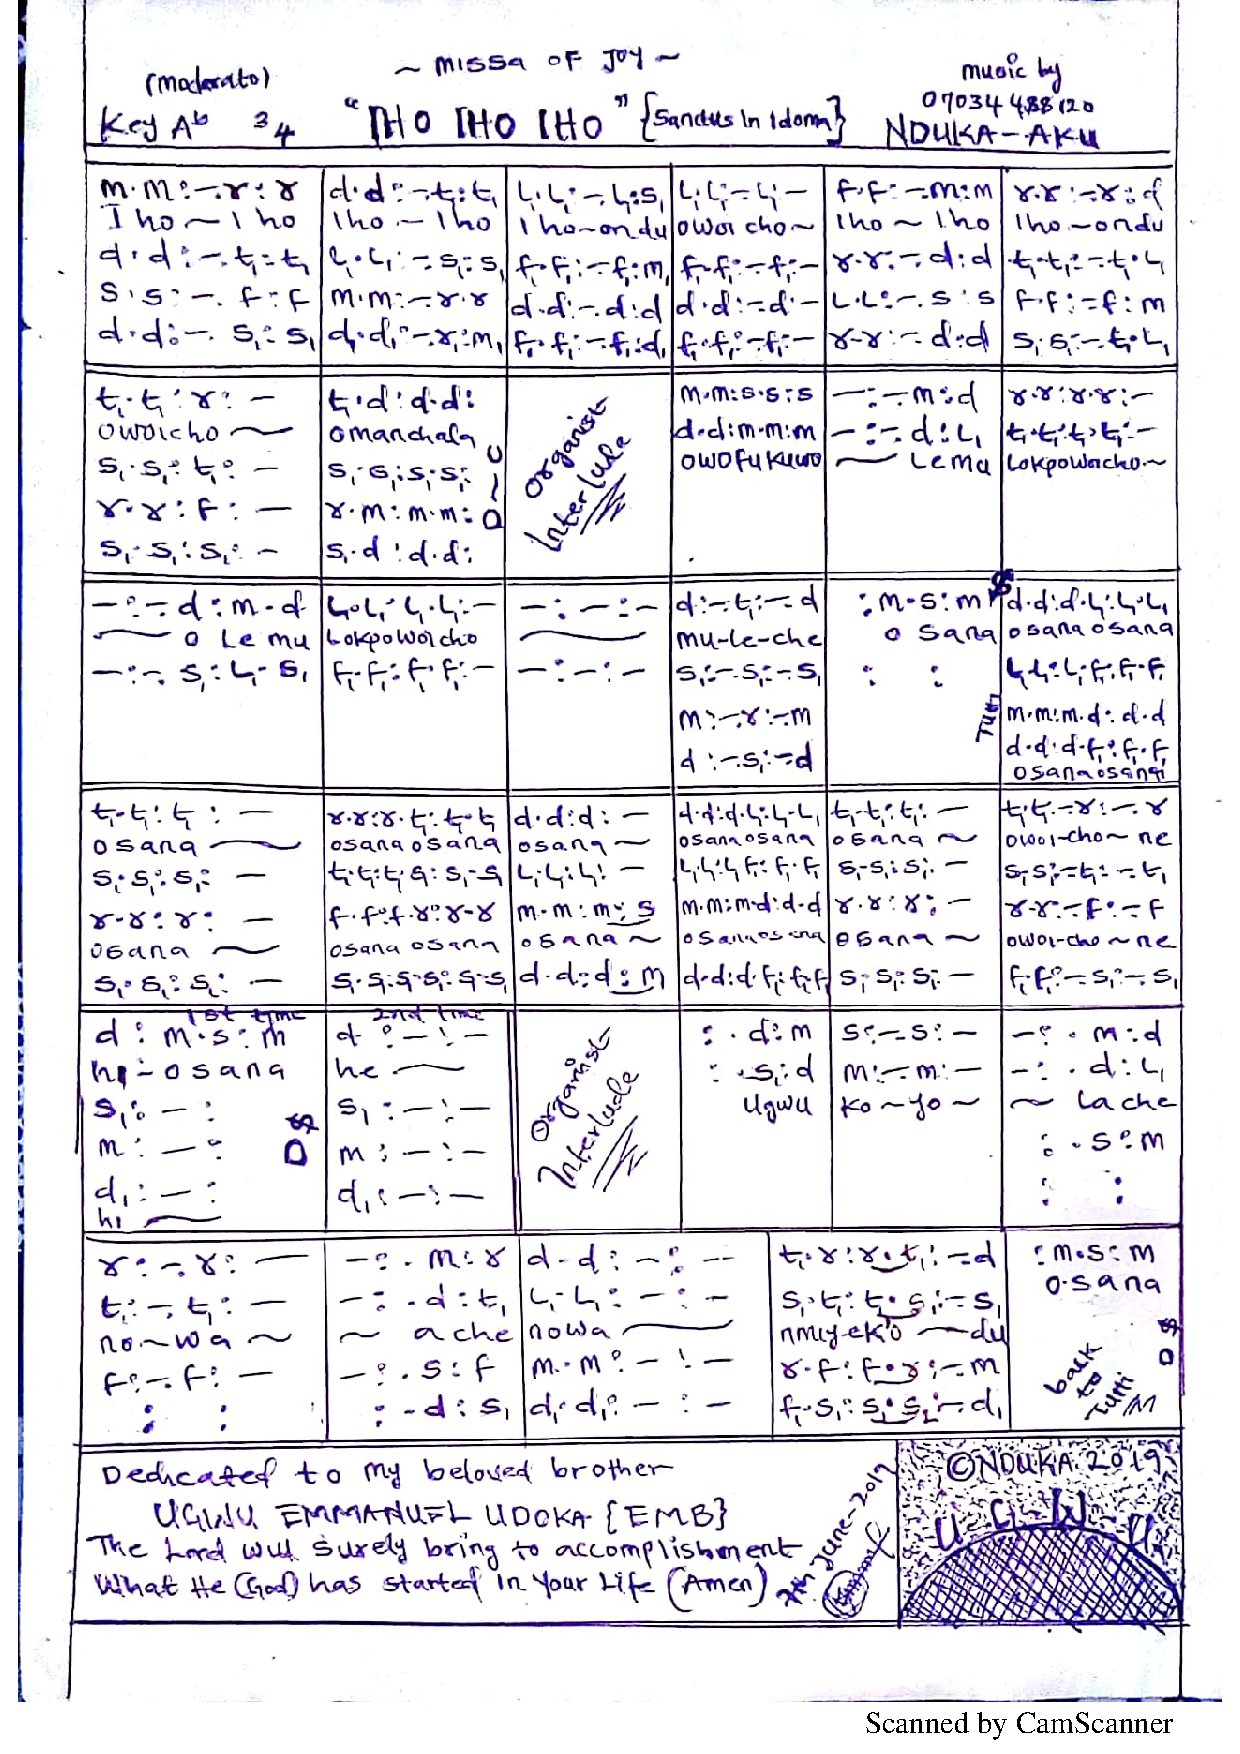 ~ MISSA OF JOY ~
(moderato)
music by
07034488120
Key Ab 3 4
"IHO IHO IHO" {Sanctus In Idoma}
NDUKA-AKU
m.m:-.r:r | d.d:-.t₁:t₁ | l₁.l₁:-.l₁:s₁ | l₁.l₁:-.l₁:- | f.f:-.m:m | r.r:-.r:d
I ho ~ I ho | I ho ~ I ho | I ho ~ ondu | owoi cho ~ | Iho ~ Iho | Iho ~ ondu
d.d:-.t₁:t₁ | l₁.l₁:-.s₁:s₁ | f₁.f₁:-.f₁:m₁ | f₁.f₁:-.f₁:- | r.r:-.d:d | t₁.t₁:-.t₁.l₁
s.s:-.f:f | m.m:-.r.r | d.d:-.d:d | d.d:-.d:- | l.l:-.s:s | f.f:-f:m
d.d:-.s₁:s₁ | d₁.d₁:-.r₁:m₁ | f₁.f₁:-.f₁:d₁ | f₁.f₁:-.f₁:- | r.r:-.d:d | s₁.s₁:-.t₁.l₁
t₁.t₁:r:- | t₁.d:d.d: | Organist Interlude | m.m:s.s:s | -:-.m:d | r.r:r.r:-
owoicho ~ | omanchala | d.d:m.m:m | -:-.d:l₁ | t₁.t₁:t₁.t₁:-
s₁.s₁:t₁:- | s₁.s₁:s₁.s₁: | owofukuwo | ~ Lema | Lokpowoicho~
r.r:f:- | r.m:m.m: | D~C
s₁.s₁:s₁:- | s₁.d:d.d:
-:-.d:m.d | l₁.l₁:l₁.l₁:- | -:-:- | d:-.t₁:-.d | :m.s:m | d.d:d.l₁:l₁.l₁
~ o Le mu | Lokpowoicho | ~ | mu-le-che | o sana | osana osana
-:-.s₁:l₁.s₁ | f₁.f₁:f₁.f₁:- | -:-:- | s₁:-.s₁:-.s₁ | : : | l₁.l₁:l₁.f₁:f₁.f₁
m:-.r:-.m | Tutti | m.m:m.d:d.d
d:-.s₁:-.d | d.d:d.f₁:f₁.f₁
osanaosana
t₁.t₁:t₁:- | r.r:r.t₁:t₁.t₁ | d.d:d:- | d.d:d.l₁:l₁.l₁ | t₁.t₁:t₁:- | t₁.t₁:-.r:-.r
osana ~ | osana osana | osana ~ | osana osana | osana ~ | owoi-cho~ne
s₁.s₁:s₁:- | t₁.t₁:t₁.s₁:s₁.s₁ | l₁.l₁:l₁:- | l₁.l₁:l₁.f₁:f₁.f₁ | s₁.s₁:s₁:- | s₁.s₁:-.t₁:-.t₁
r.r:r:- | f.f:f.r:r.r | m.m:m:s | m.m:m.d:d.d | r.r:r:- | r.r:-.f:-.f
osana ~ | osana osana | osana ~ | osanaosana | osana ~ | owoi-cho~ne
s₁.s₁:s₁:- | s₁.s₁:s₁.s₁:s₁.s₁ | d.d:d:m | d.d:d.f₁:f₁.f₁ | s₁.s₁:s₁:- | f₁.f₁:-.s₁:-.s₁
1st time | 2nd time
d:m.s:m | d:-:- | Organist Interlude | :.d:m | s:-.s:- | -:.m:d
hi-osana | he ~ | :.s₁:d | m:-.m:- | -:.d:l₁
s₁:-: | s₁:-:- | Ugwu | Ko~yo~ | ~ Lache
m:-: | D$ | m:-:- | :.s:m
d₁:-: | d₁:-:- | : :
hi ~
r:-.r:- | -:.m:r | d.d:-:- | t₁.r:r.t₁:-d | :m.s:m
t₁:-.t₁:- | -:.d:t₁ | l₁.l₁:-:- | s₁.t₁:t₁.s₁:-s₁ | o.sana
no~wa~ | ~ ache | nowa ~ | nmiyek'o ~ du
f:-.f:- | -:.s:f | m.m:-:- | r.f:f.r:-.m | back to Tutti
: : | :-d:s₁ | d₁.d₁:-:- | f₁.s₁:s₁.s₂:-.d₁ | D$
Dedicated to my beloved brother
UGWU EMMANUEL UDOKA {EMB}
The Lord will surely bring to accomplishment
What He (God) has started in your Life (Amen)
7th June-2019
©NDUKA 2019
U G W U
Scanned by CamScanner